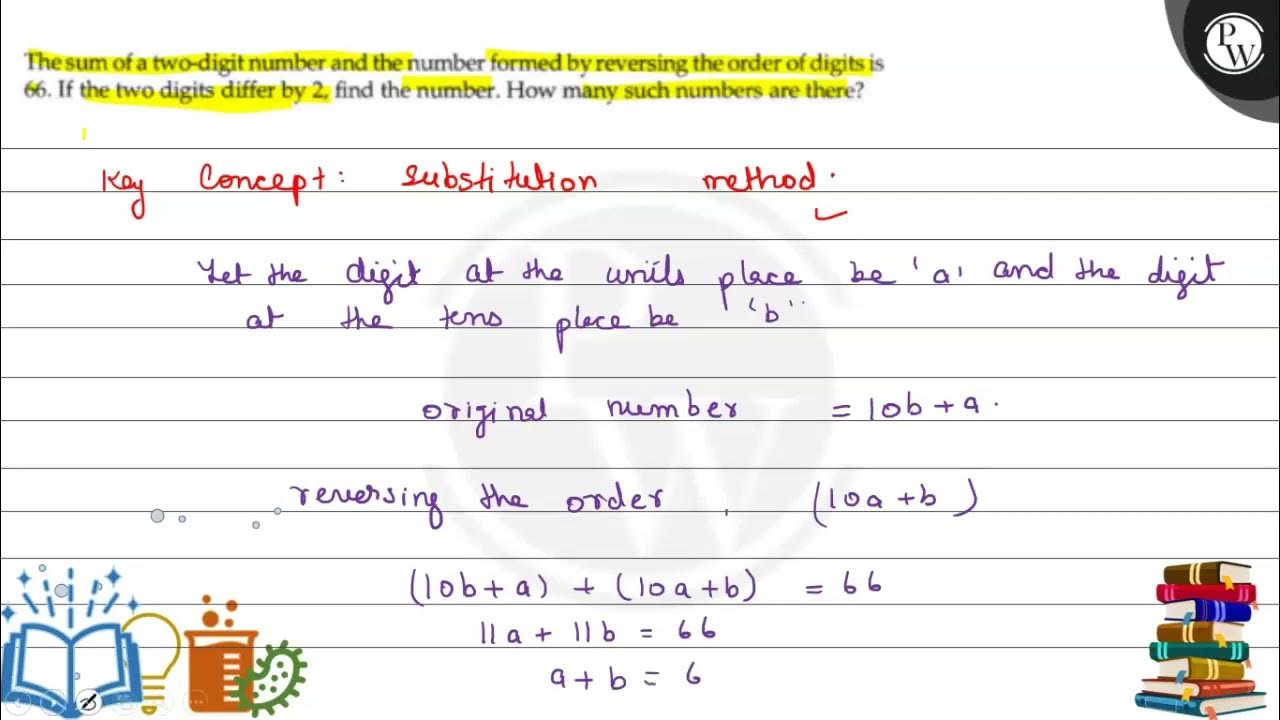 The sum of a two-digit number and the number formed by reversing the order of digits is
66. If the two digits differ by 2, find the number. How many such numbers are there?
Key Concept: Substitution method.
Let the digit at the units place be 'a' and the digit
at the tens place be 'b'
original number = 10b + a.
reversing the order (10a + b)
(10b + a) + (10a + b) = 66
11a + 11b = 66
a + b = 6
PW